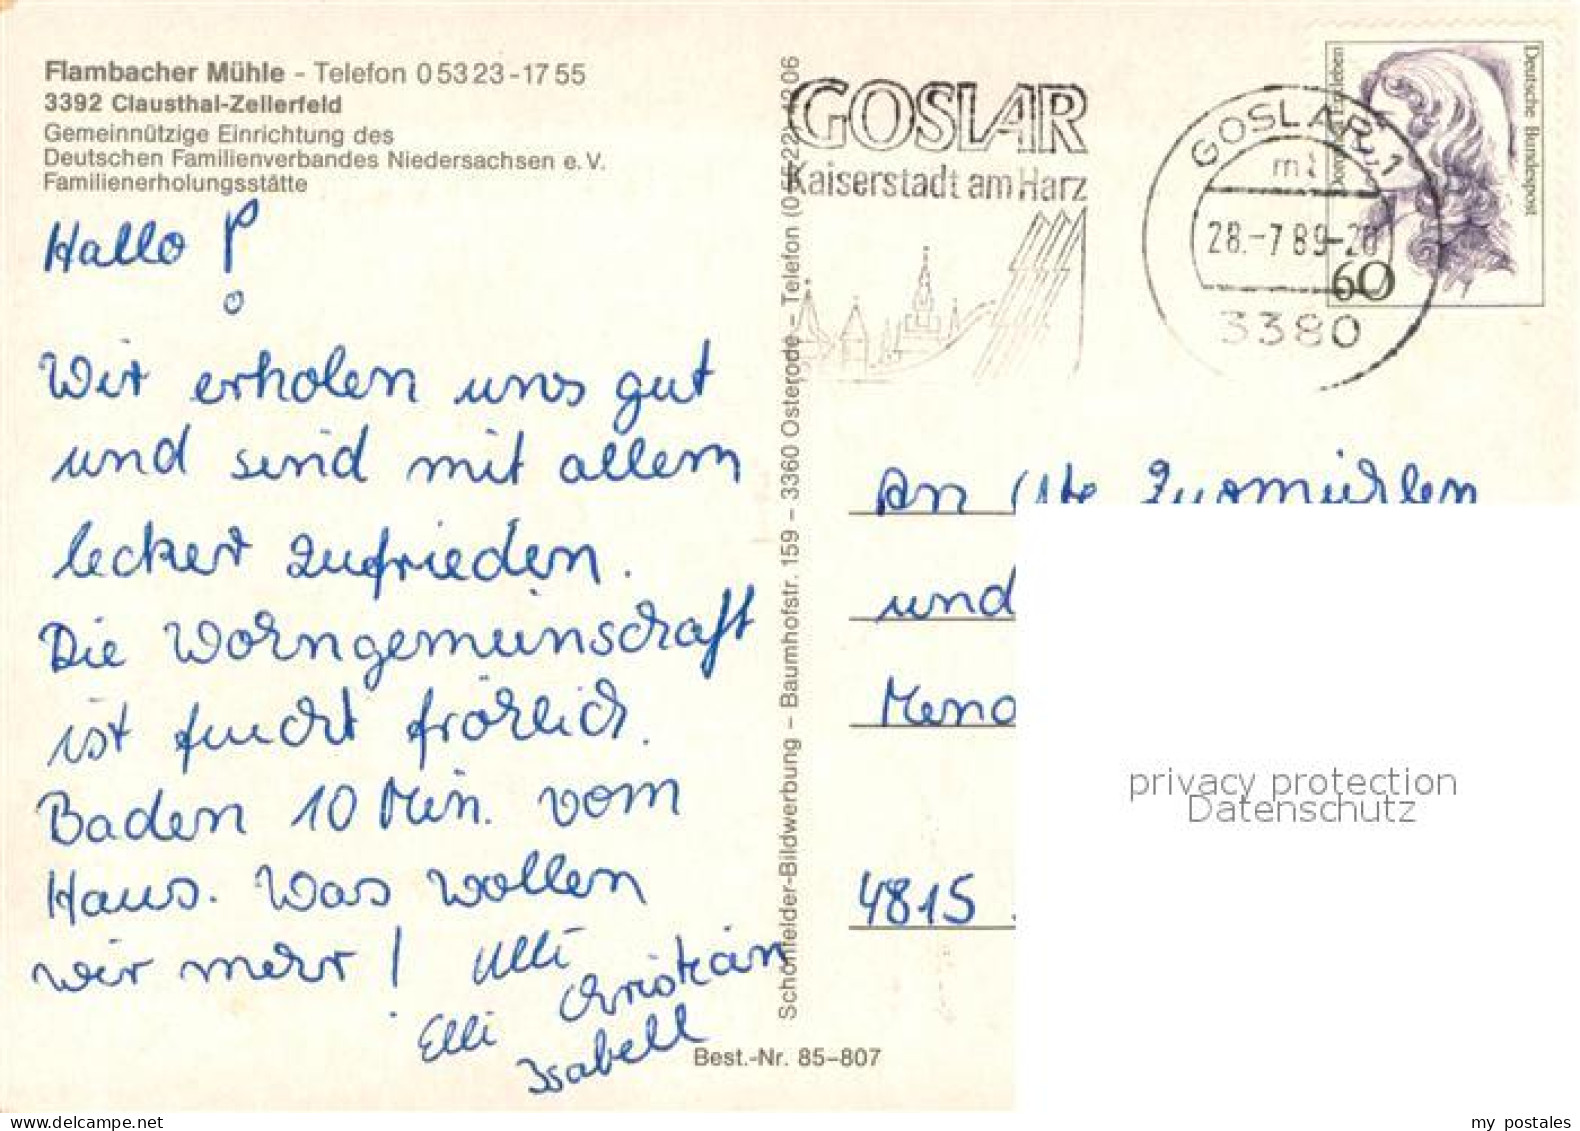 Flambacher Mühle - Telefon 05323-1755
3392 Clausthal-Zellerfeld
Gemeinnützige Einrichtung des
Deutschen Familienverbandes Niedersachsen e.V.
Familienerholungsstätte
Hallo !
Wir erholen uns gut
und sind mit allem
lecker zufrieden.
Die Wohngemeinschaft
ist feucht fröhlich.
Baden 10 Min. vom
Haus. Was wollen
wir mehr! Ulli
Christian
Elli
Isabell
Schönfelder-Bildwerbung - Baumhofstr. 159 - 3360 Osterode - Telefon
Best.-Nr. 85-807
GOSLAR
Kaiserstadt am Harz
GOSLAR 1
28.-7 89-20
3380
Deutsche Bundespost
60
An
und
4815
privacy protection
Datenschutz
my postales